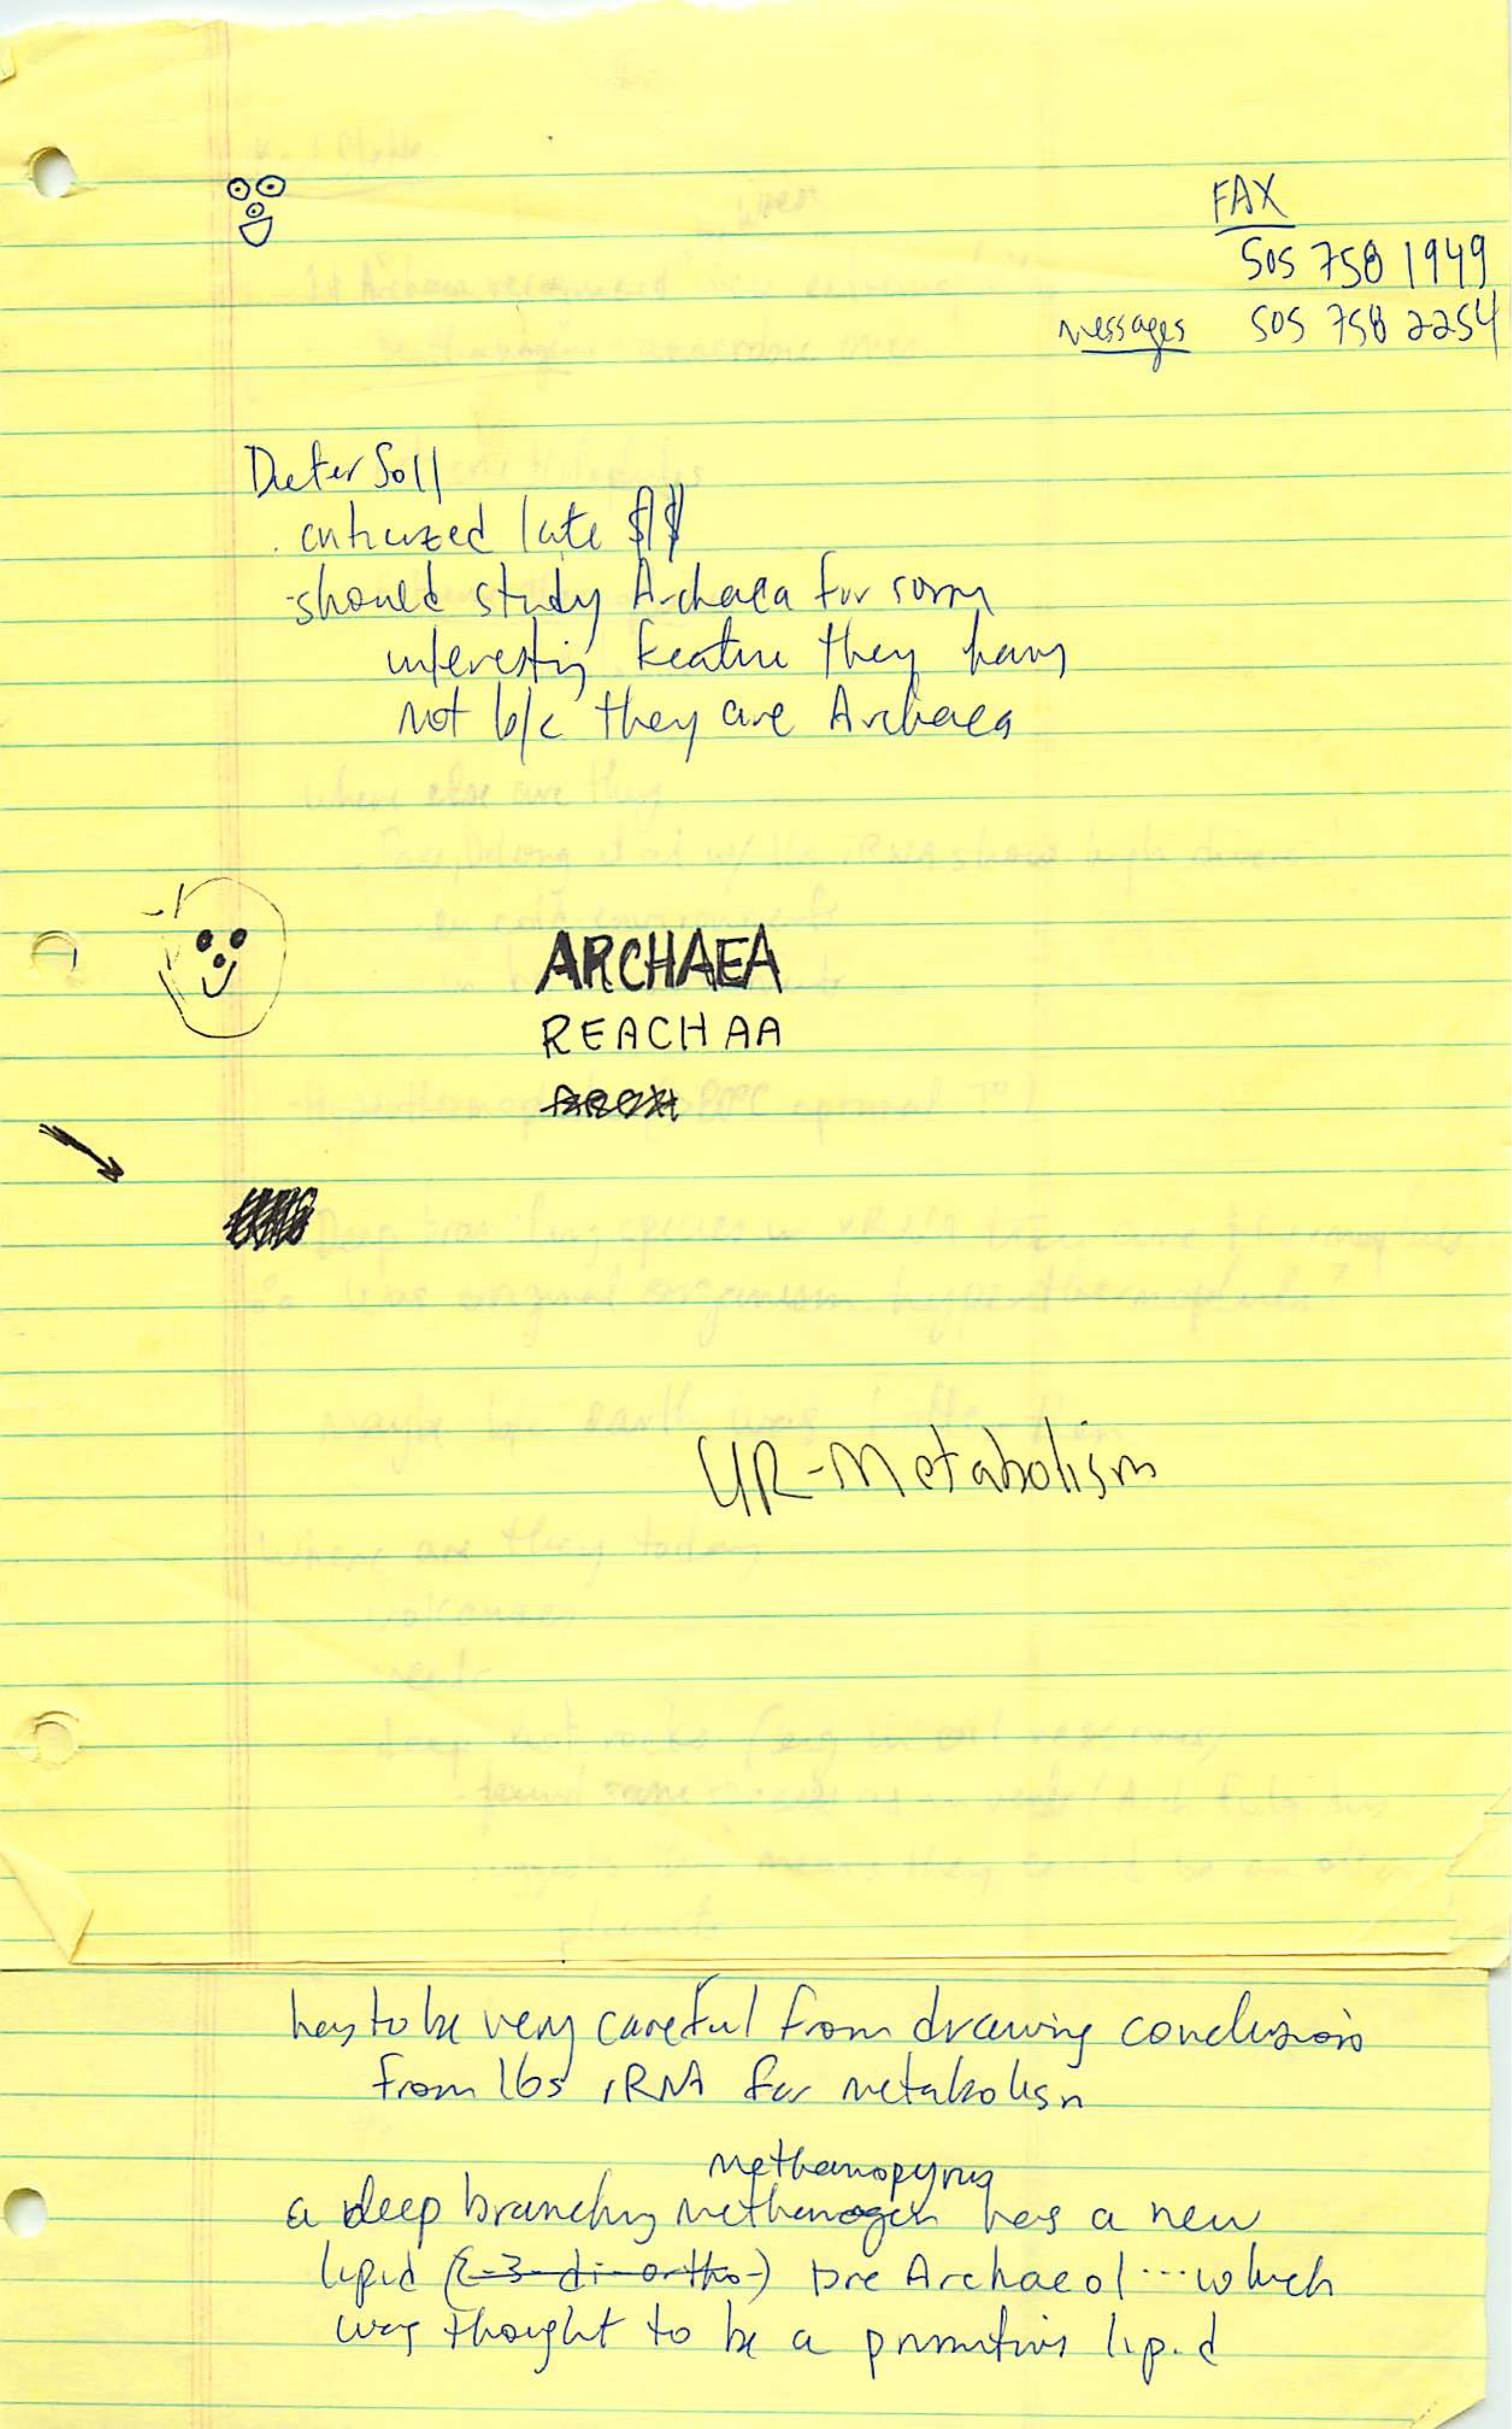 FAX
505 758 1949
messages 505 758 2254
Dieter Soll
late
-should study Archaea for some
interesting feature they have
not b/c they are Archaea
ARCHAEA
REACHAA
ARCH
UR-Metabolism
has to be very careful from drawing conclusions
from 16s rRNA for metabolism
methanopyrus
a deep branching methanogen has a new
lipid (2-3-di-ortho-) pre Archaeol...which
was thought to be a primitive lipid